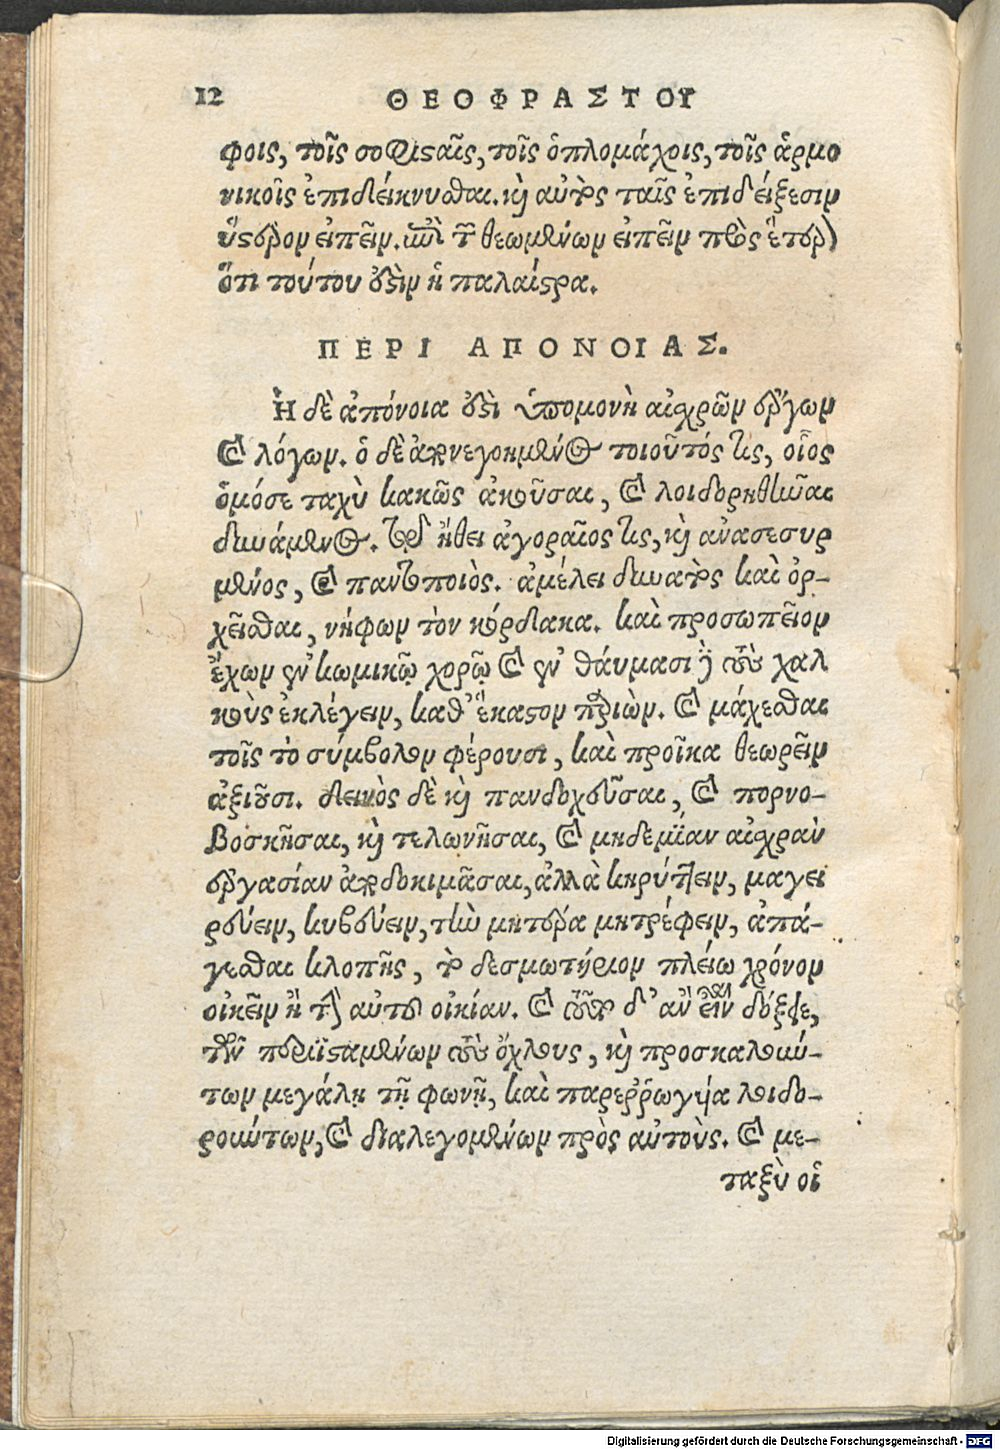 12 ΘΕΟΦΡΑΣΤΟΥ
φοις, τοῖς σοφιϛαῖς, τοῖς ὁπλομάχοις, τοῖς ἁρμο
νικοῖς ἐπιδείκνυσθαι. καὶ αὐτὸς ταῖς ἐπιδείξεσιν
ὕϛερον εἰπεῖν. ἐπὶ τῶν θεωμένων εἰπεῖν πρὸς ἕτερον
ὅτι τούτου ἐϛὶν ἡ παλαίϛρα.
ΠΕΡΙ ΑΠΟΝΟΙΑΣ.
Ἡ δὲ ἀπόνοια ἐϛὶ ὑπομονὴ αἰσχρῶν ἔργων
καὶ λόγων. ὁ δὲ ἀπονενοημένος τοιοῦτός τις, οἷος
ὀμόσε ταχὺ κακῶς ἀκοῦσαι, καὶ λοιδορηθῆναι
δυνάμενος. τῷ ἤθει ἀγοραῖος τις, καὶ ἀνασεσυρ
μένος, καὶ παντοποιὸς. ἀμέλει δυνατὸς καὶ ὀρ-
χεῖσθαι, νήφων τὸν κόρδακα. καὶ προσωπεῖον
ἔχων ἐν κωμικῷ χορῷ καὶ ἐν θάυμασι δὲ τοὺς χαλ
κοὺς ἐκλέγειν, καθ' ἕκαϛον παριὼν. καὶ μάχεσθαι
τοῖς τὸ σύμβολον φέρουσι, καὶ προῖκα θεωρεῖν
ἀξιοῦσι. δεινὸς δὲ καὶ πανδοχεῦσαι, καὶ πορνο-
βοσκῆσαι, καὶ τελωνῆσαι, καὶ μηδεμίαν αἰσχρὰν
ἐργασίαν ἀποδοκιμᾶσαι, ἀλλὰ κηρύττειν, μαγει
ρεύειν, κυβεύειν, τὴν μητέρα μὴ τρέφειν, ἀπά-
γεσθαι κλοπῆς, τὸ δεσμωτήριον πλείω χρόνον
οἰκεῖν ἢ τὴν αὐτοῦ οἰκίαν. καὶ τοῦτο δ' ἂν εἶναι δόξειε,
τῶν περιϊϛαμένων τοὺς ὄχλους, καὶ προσκαλούν-
των μεγάλῃ τῇ φωνῇ, καὶ παρεῤῥωγυίᾳ λοιδο-
ρούντων, καὶ διαλεγομένων πρὸς αὐτοὺς. καὶ με-
ταξὺ οἱ
Digitalisierung gefördert durch die Deutsche Forschungsgemeinschaft - DFG